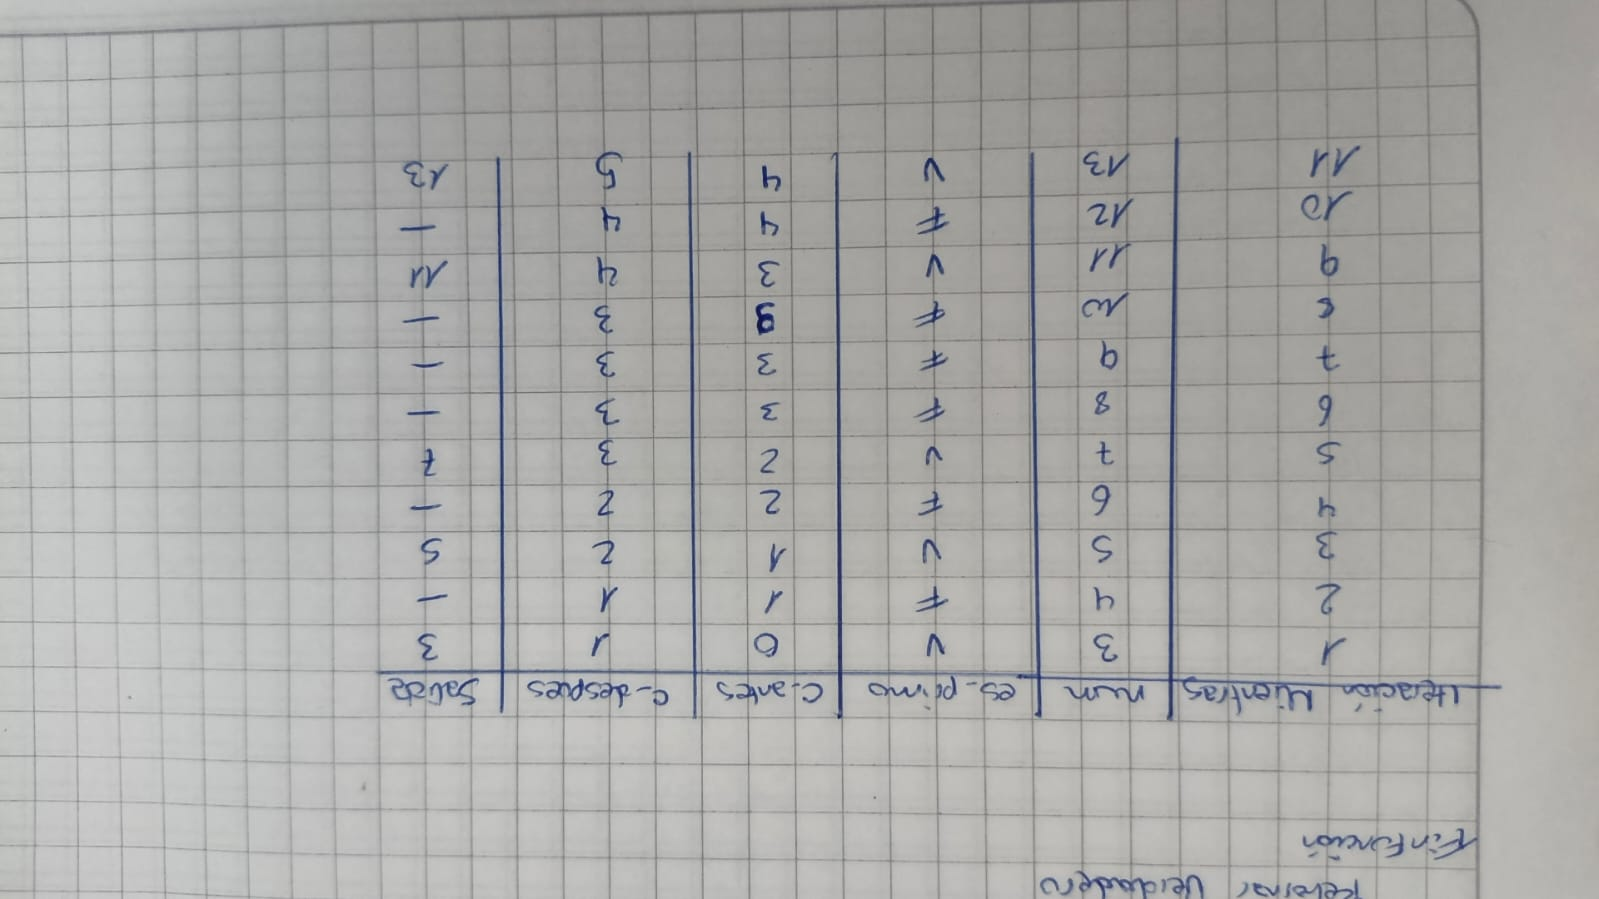 Retornar Verdadero
Fin Función
Iteración Mientras num es_primo C_antes C_despues Salida
1 3 V 0 1 3
2 4 F 1 1 —
3 5 V 1 2 5
4 6 F 2 2 —
5 7 V 2 3 7
6 8 F 3 3 —
7 9 F 3 3 —
8 10 F 3 3 —
9 11 V 3 4 11
10 12 F 4 4 —
11 13 V 4 5 13